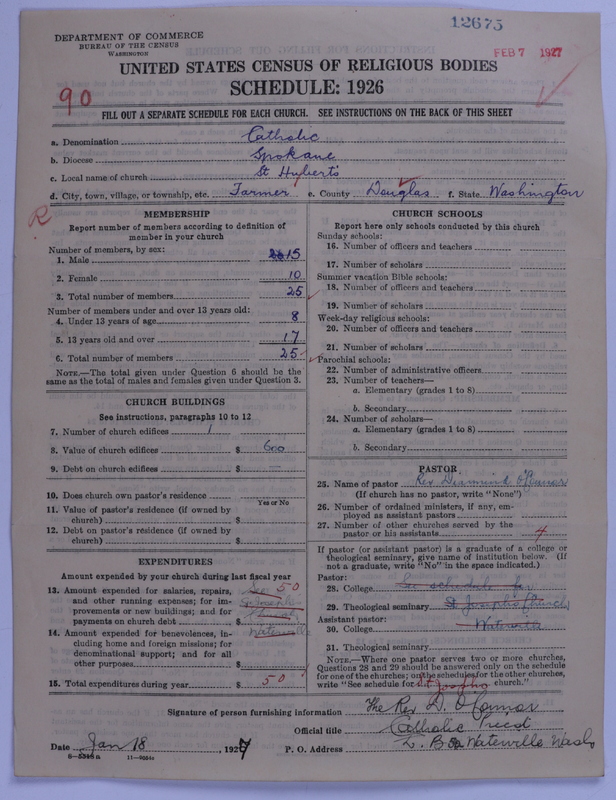 12675
DEPARTMENT OF COMMERCE
BUREAU OF THE CENSUS
WASHINGTON
FEB 7 1927
UNITED STATES CENSUS OF RELIGIOUS BODIES
SCHEDULE: 1926
90
FILL OUT A SEPARATE SCHEDULE FOR EACH CHURCH. SEE INSTRUCTIONS ON THE BACK OF THIS SHEET
a. Denomination Catholic
b. Diocese Spokane
c. Local name of church St Hubert's
d. City, town, village, or township, etc. Farmer e. County Douglas f. State Washington
R
MEMBERSHIP
Report number of members according to definition of
member in your church
Number of members, by sex:
1. Male 15
2. Female 10
3. Total number of members 25
Number of members under and over 13 years old:
4. Under 13 years of age 8
5. 13 years old and over 17
6. Total number of members 25
NOTE.—The total given under Question 6 should be the
same as the total of males and females given under Question 3.
CHURCH BUILDINGS
See instructions, paragraphs 10 to 12
7. Number of church edifices 1
8. Value of church edifices $ 600
9. Debt on church edifices $
10. Does church own pastor's residence
Yes or No
11. Value of pastor's residence (if owned by
church) $
12. Debt on pastor's residence (if owned by
church) $
EXPENDITURES
Amount expended by your church during last fiscal year
13. Amount expended for salaries, repairs,
and other running expenses; for im-
provements or new buildings; and for
payments on church debt $ 50
14. Amount expended for benevolences, in-
cluding home and foreign missions; for
denominational support; and for all
other purposes $
15. Total expenditures during year $ 50
CHURCH SCHOOLS
Report here only schools conducted by this church
Sunday schools:
16. Number of officers and teachers
17. Number of scholars
Summer vacation Bible schools:
18. Number of officers and teachers
19. Number of scholars
Week-day religious schools:
20. Number of officers and teachers
21. Number of scholars
Parochial schools:
22. Number of administrative officers
23. Number of teachers—
a. Elementary (grades 1 to 8)
b. Secondary
24. Number of scholars—
a. Elementary (grades 1 to 8)
b. Secondary
PASTOR
25. Name of pastor Rev Diarmuid O'Connor
(If church has no pastor, write "None")
26. Number of ordained ministers, if any, em-
ployed as assistant pastors
27. Number of other churches served by the
pastor or his assistants 4
If pastor (or assistant pastor) is a graduate of a college or
theological seminary, give name of institution below. (If
not a graduate, write "No" in the space indicated.)
Pastor:
28. College See schedule for
29. Theological seminary St Joseph's Church
Assistant pastor:
30. College Waterville
31. Theological seminary
NOTE.—Where one pastor serves two or more churches,
Questions 28 and 29 should be answered only on the schedule
for one of the churches; on the schedules for the other churches,
write "See schedule for St Josephs church."
Signature of person furnishing information The Rev D. O'Connor
Official title Catholic Priest
Date Jan 18, 1927 P. O. Address Waterville Wash
8—5549 a 11—9564a